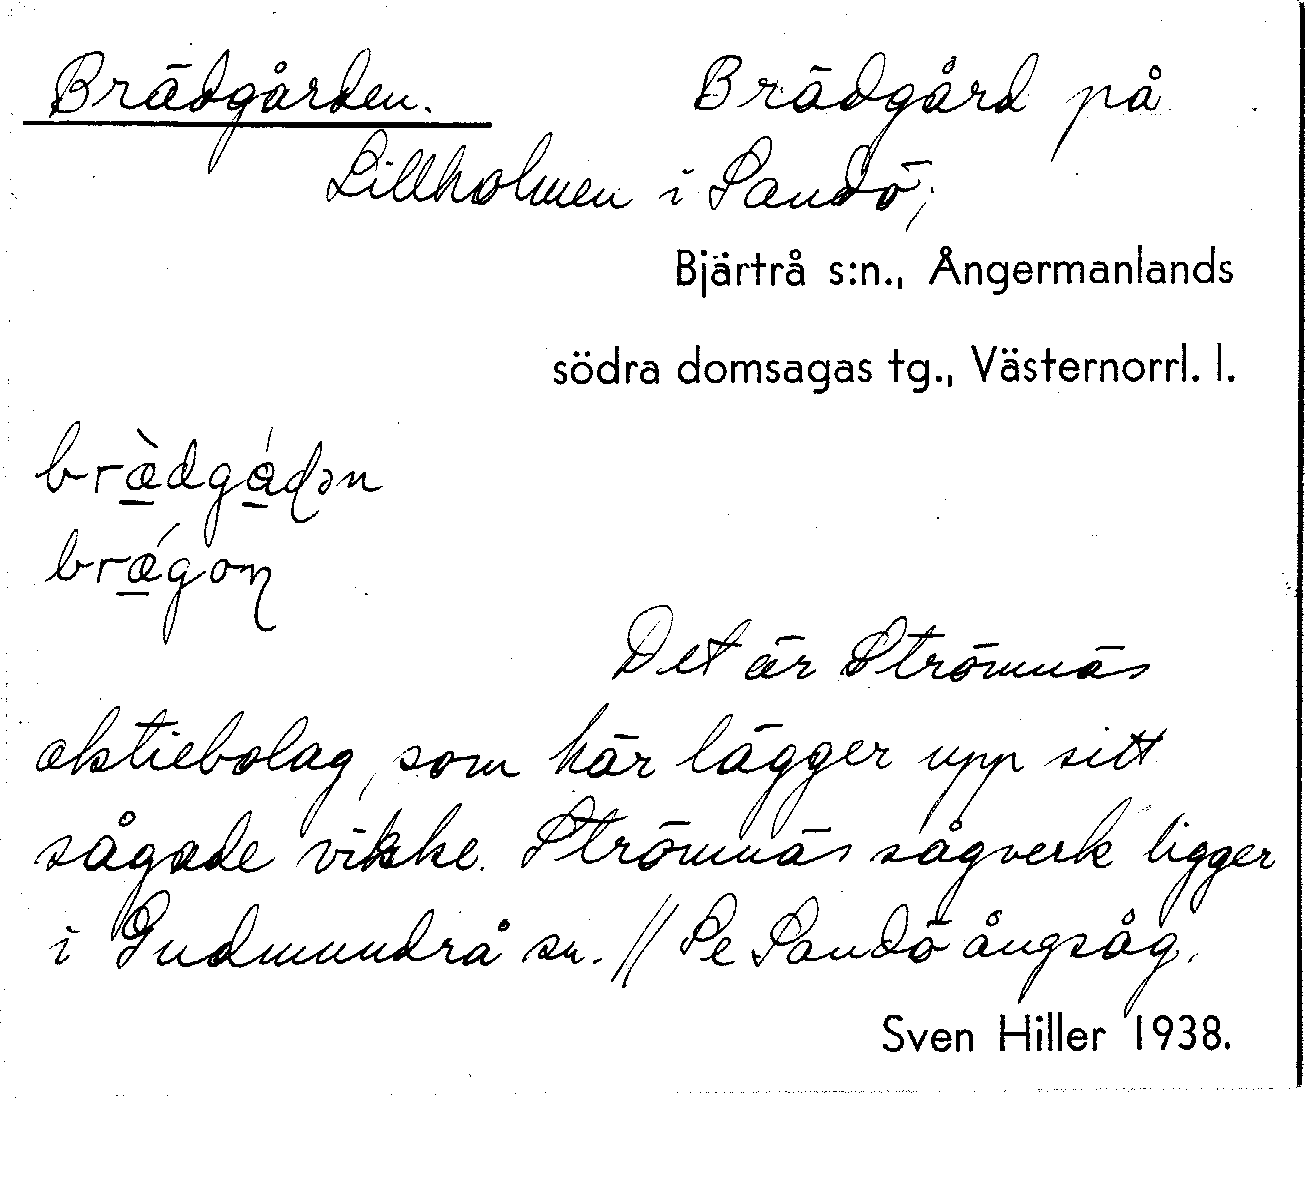 Brädgården. Brädgård på
Lillholmen i Sandö,
Bjärtrå s:n., Ångermanlands
södra domsagas tg., Västernorrl. l.
bræ̀dgádən
Det är Strömnäs
aktiebolag, som här lägger upp sitt
sågade virke. Strömnäs sågverk ligger
i Gudmundrå sn. // Se Sandö ångsåg.
Sven Hiller 1938.